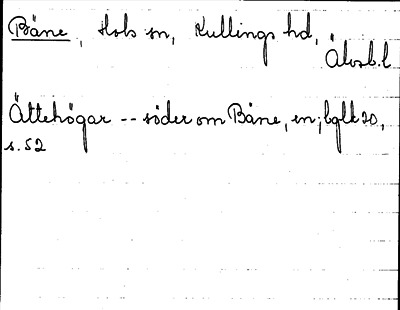 Bäne, Hols sn, Kullings hd,
Älvsb. l
Ättehögar -- söder om Bäne, en;
s. 52